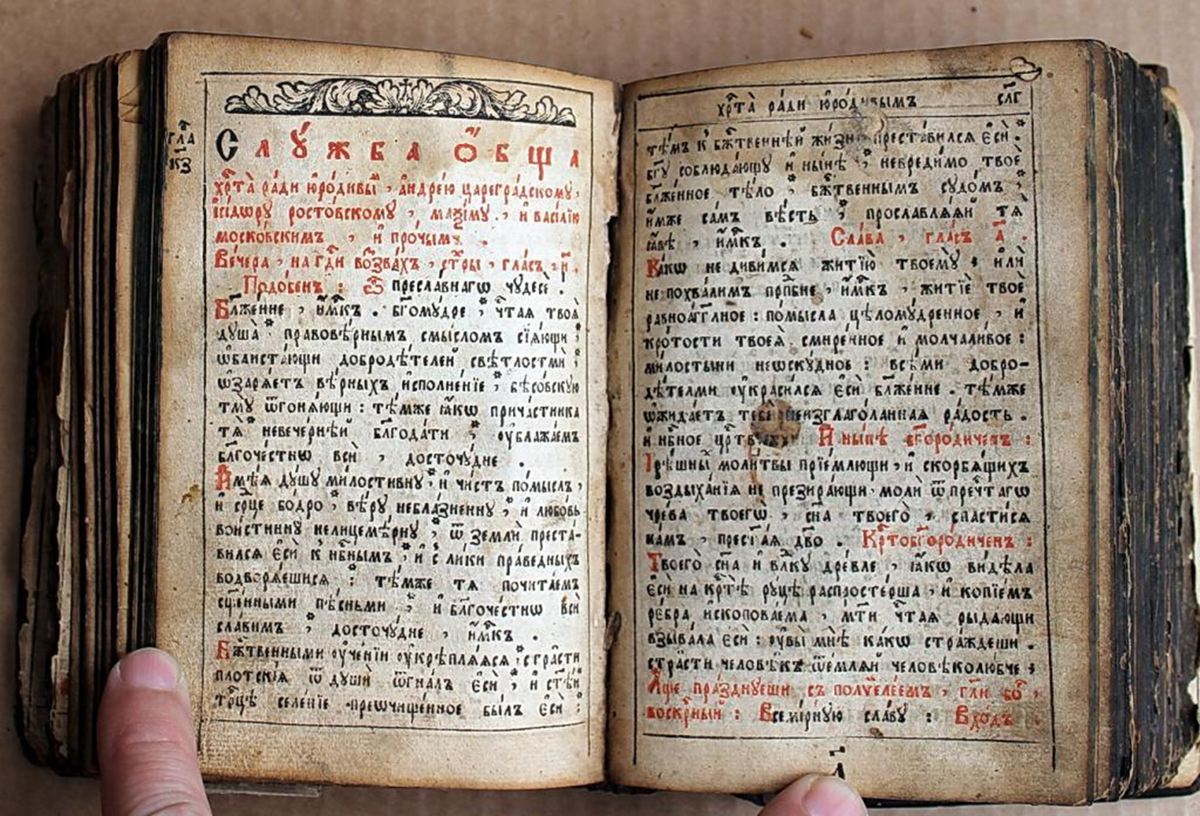 гла҃
к҃з
Слꙋ́жба ѻ҆́бщаѧ
хрⷭ҇та̀ ра́ди ю҆ро́дивый, а҆ндре́ю цареграⷣскомꙋ,
і҆сі́дѡрꙋ росто́вскомꙋ, маѯі́мꙋ, и҆ васі́лїю
моско́вскимъ, и҆ про́чымъ.
Ве́чера, на гдⷭ҇и возва́хъ, стⷯры, гла́съ, и҃.
Подо́бенъ: Ѽ пресла́внагѡ чꙋдесѐ.
Бл҃же́нне, и҆́мкъ. бг҃омꙋ́дре, чⷭ҇тая твоѧ̀
дꙋша̀ правовѣ́рнымъ смы́сломъ сїѧ́ющи,
ѡ҆блиста́ющи добродѣ́телей свѣ́тлостми,
ѡ҆зарѧ́етъ вѣ́рныхъ и҆сполне́нїе, бѣсо́вскꙋю
тмꙋ̀ ѿгонѧ́ющи: тѣ́мже ꙗ҆́кѡ прича́стника
тѧ̀ невече́рнѣй блгⷣти, ᲂу҆блажа́емъ
бл҃гоче́стнѡ всѝ, досточꙋ́дне.
И҆мѣ́ѧ дꙋ́шꙋ ми́лостивнꙋ, и҆ чи́стъ по́мыслъ,
и҆ срⷣце бо́дро, вѣ́рꙋ небла́зненнꙋ, и҆ любо́вь
вои́стиннꙋ нелицемѣ́рнꙋ, ѿ землѝ преста́-
вилсѧ є҆сѝ к нбⷭ҇нымъ, и҆ с ли́ки пра́ведныхъ
водворѧ́ешисѧ: тѣ́мже тѧ̀ почита́емъ
сщ҃е́нными пѣ́сньми, и҆ бл҃гоче́стнѡ всѝ
сла́вимъ, досточꙋ́дне, и҆́мкъ.
Бж҃твенными ᲂу҆че́нїи ᲂу҆крѣплѧ́ѧсѧ, стра́сти
плотскі́ѧ ѿ дꙋшѝ ѿгна́лъ є҆сѝ, и҆ ст҃ѣ́й
трⷪ҇цѣ селе́нїе пречи́щенное бы́лъ є҆сѝ:
хрⷭ҇та̀ ра́ди ю҆ро́дивымъ
сл҃г
тѣ́мъ к бжⷭ҇твеннѣй жи́зни преста́вилсѧ є҆сѝ.
бг҃ꙋ соблюда́ющꙋ и҆ ны́нѣ, невреди́мо твоѐ
бл҃же́нное тѣ́ло, бжⷭ҇твеннымъ сꙋдо́мъ,
и҆́мже са́мъ вѣ́сть, прославлѧ́ѧй тѧ̀
ꙗ҆́вѣ, и҆́мкъ. Сла́ва, гла́съ а҃.
Ка́кѡ не диви́мсѧ житїю̀ твоемꙋ̀: и҆лѝ
не похва́лимъ прпⷣбне, и҆́мкъ, житїѐ твоѐ
равноа́гг҃лное: по́мысла цѣломꙋ́дренное, и҆
кро́тости твоеѧ̀ смире́нное и҆ молчали́вое:
ми́лостыни неѡскꙋ́дное: всѣ́ми добро-
дѣ́телми ᲂу҆краси́лсѧ є҆сѝ бл҃же́нне. тѣ́мже
ѡ҆жида́етъ тебѐ неизглаго́ланная ра́дость.
и҆ нбⷭ҇ное црⷭ҇тво. И҆ ны́нѣ бг҃оро́диченъ:
Грѣ́шный моли́твы прїе́млющи, и҆ скорбѧ́щихъ
воздыха́нїѧ не презира́ющи. молѝ ѿ пречⷭ҇тагѡ
чре́ва твоегѡ̀, сн҃а твоего̀, спасти́сѧ
на́мъ, прест҃а́ѧ дв҃о. Крⷭ҇тобг҃оро́диченъ:
Твоего̀ сн҃а и҆ влⷣкꙋ дре́вле, ꙗ҆́кѡ ви́дѣла
є҆сѝ на крⷭ҇тѣ̀ рꙋ́цѣ распросте́рша, и҆ копїе́мъ
ре́бра и҆скопова́ема, мт҃и чⷭ҇тая рыда́ющи
взыва́ла є҆сѝ: ᲂу҆вы̀ мнѣ̀ ка́кѡ стра́ждеши.
стра́сти человѣ́къ ѿе́млѧй человѣколю́бче:
А҆́ще пра́зднꙋеши съ полᲂуеле́емъ, глⷭ҇и бг҃ъ,
воскрⷭ҇ный: Всемі́рнꙋю сла́вꙋ: Вхо́дъ.